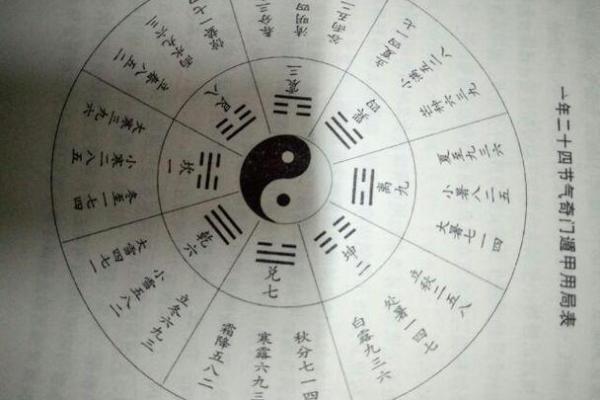 一年二十四节气奇门遁甲用局表
离九
夏至九三六
小暑八二五
大暑七一四
坤二
立秋二五八
处暑一四七
白露九三六
兑七
秋分七一四
寒露六九三
霜障五八二
乾六
立冬六九三
小雪五八二
大雪四七一
坎一
冬至一七四
小寒二八五
大寒三九六
艮八
立春八五二
雨水九六三
惊蛰一七
震三
春分
清明四
谷雨五二
巽四
立夏四一七
小满五二八
芒种六三九